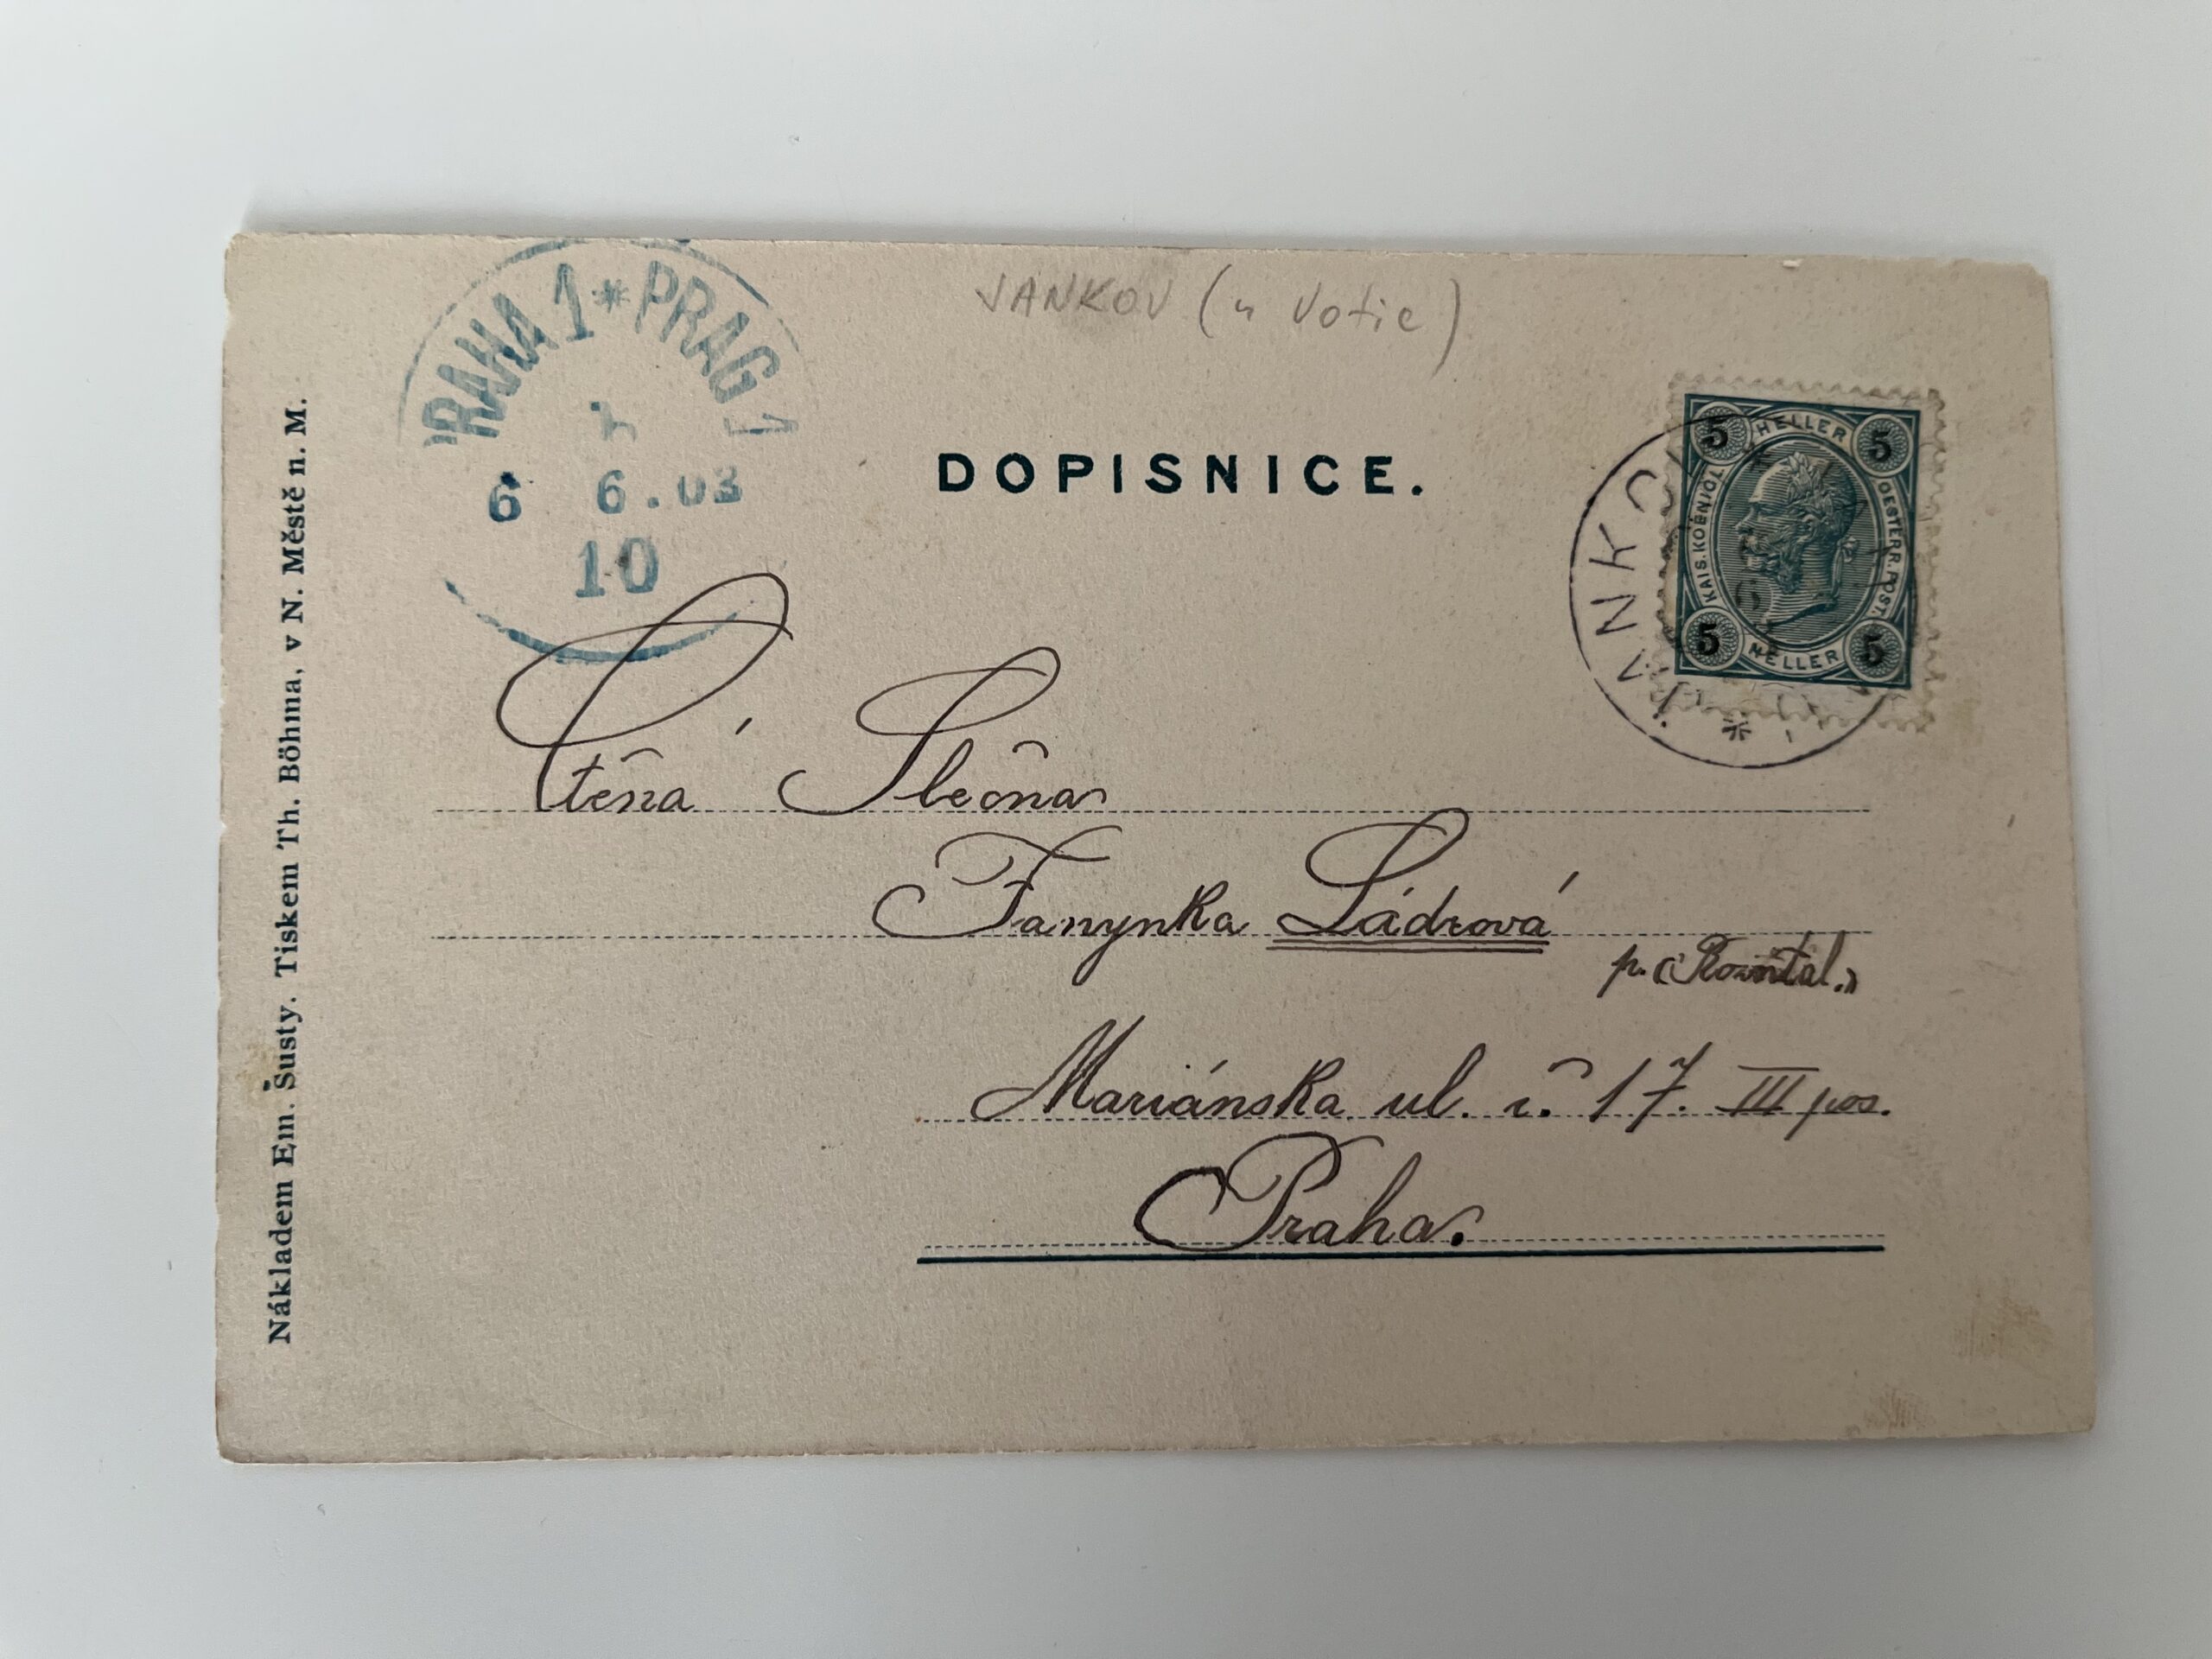 JANKOV (u Votic)
PRAHA 1 * PRAG
6 6.03
10
DOPISNICE.
5 HELLER 5
KAIS. KOENIGL. OESTERR. POST.
5 HELLER 5
JANKO
Ctěná Slečna
Fanynka Ládrová
p. „Rosntal.“
Mariánská ul. č. 17. III pos.
Praha.
Nákladem Em. Šusty. Tiskem Th. Böhma, v N. Městě n. M.